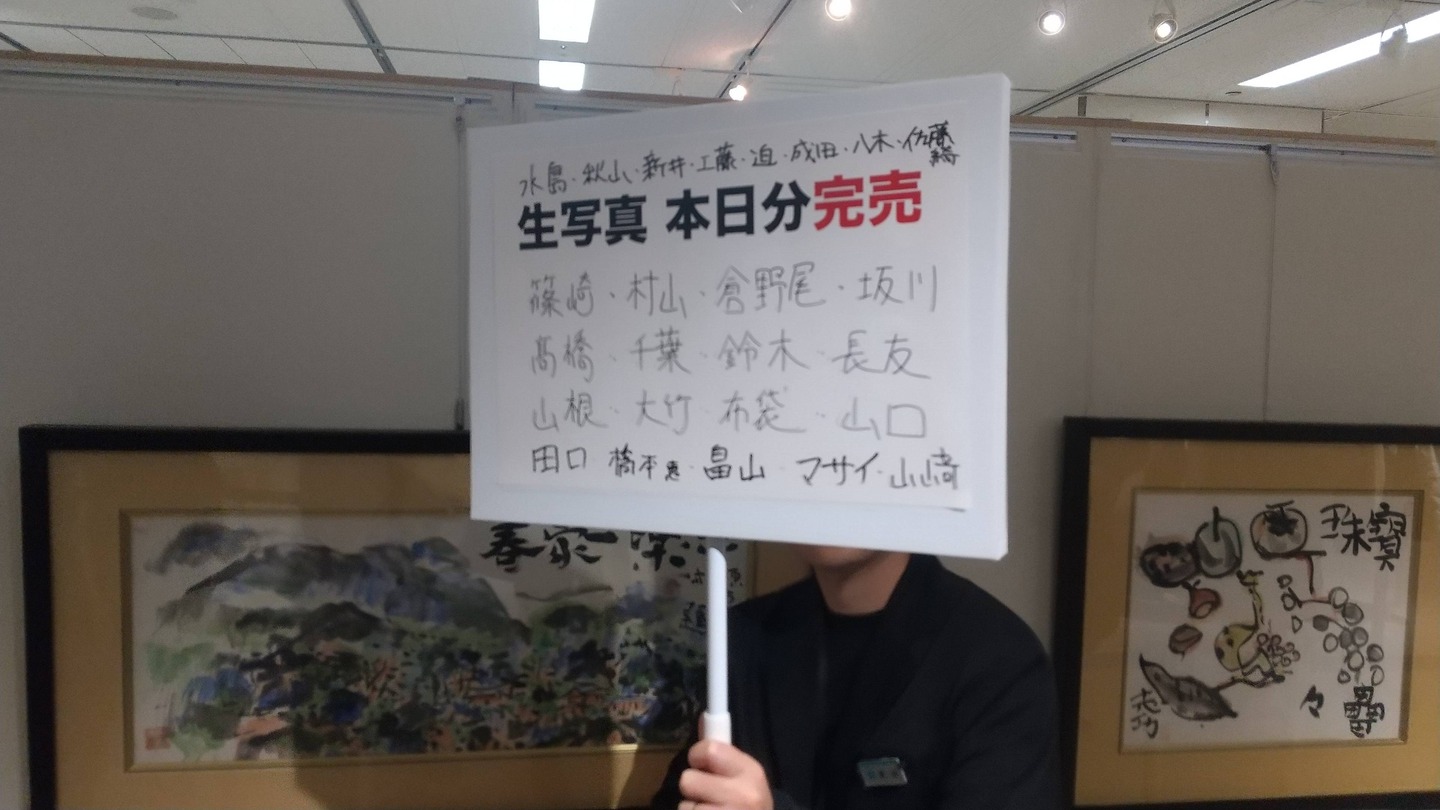 水島・秋山・新井・工藤・迫・成田・八木・佐藤綺
生写真 本日分完売
篠崎・村山・倉野尾・坂川
髙橋・千葉・鈴木・長友
山根・大竹・布袋・山口
田口 橋本恵・畠山 マサイ・山﨑
珠寶